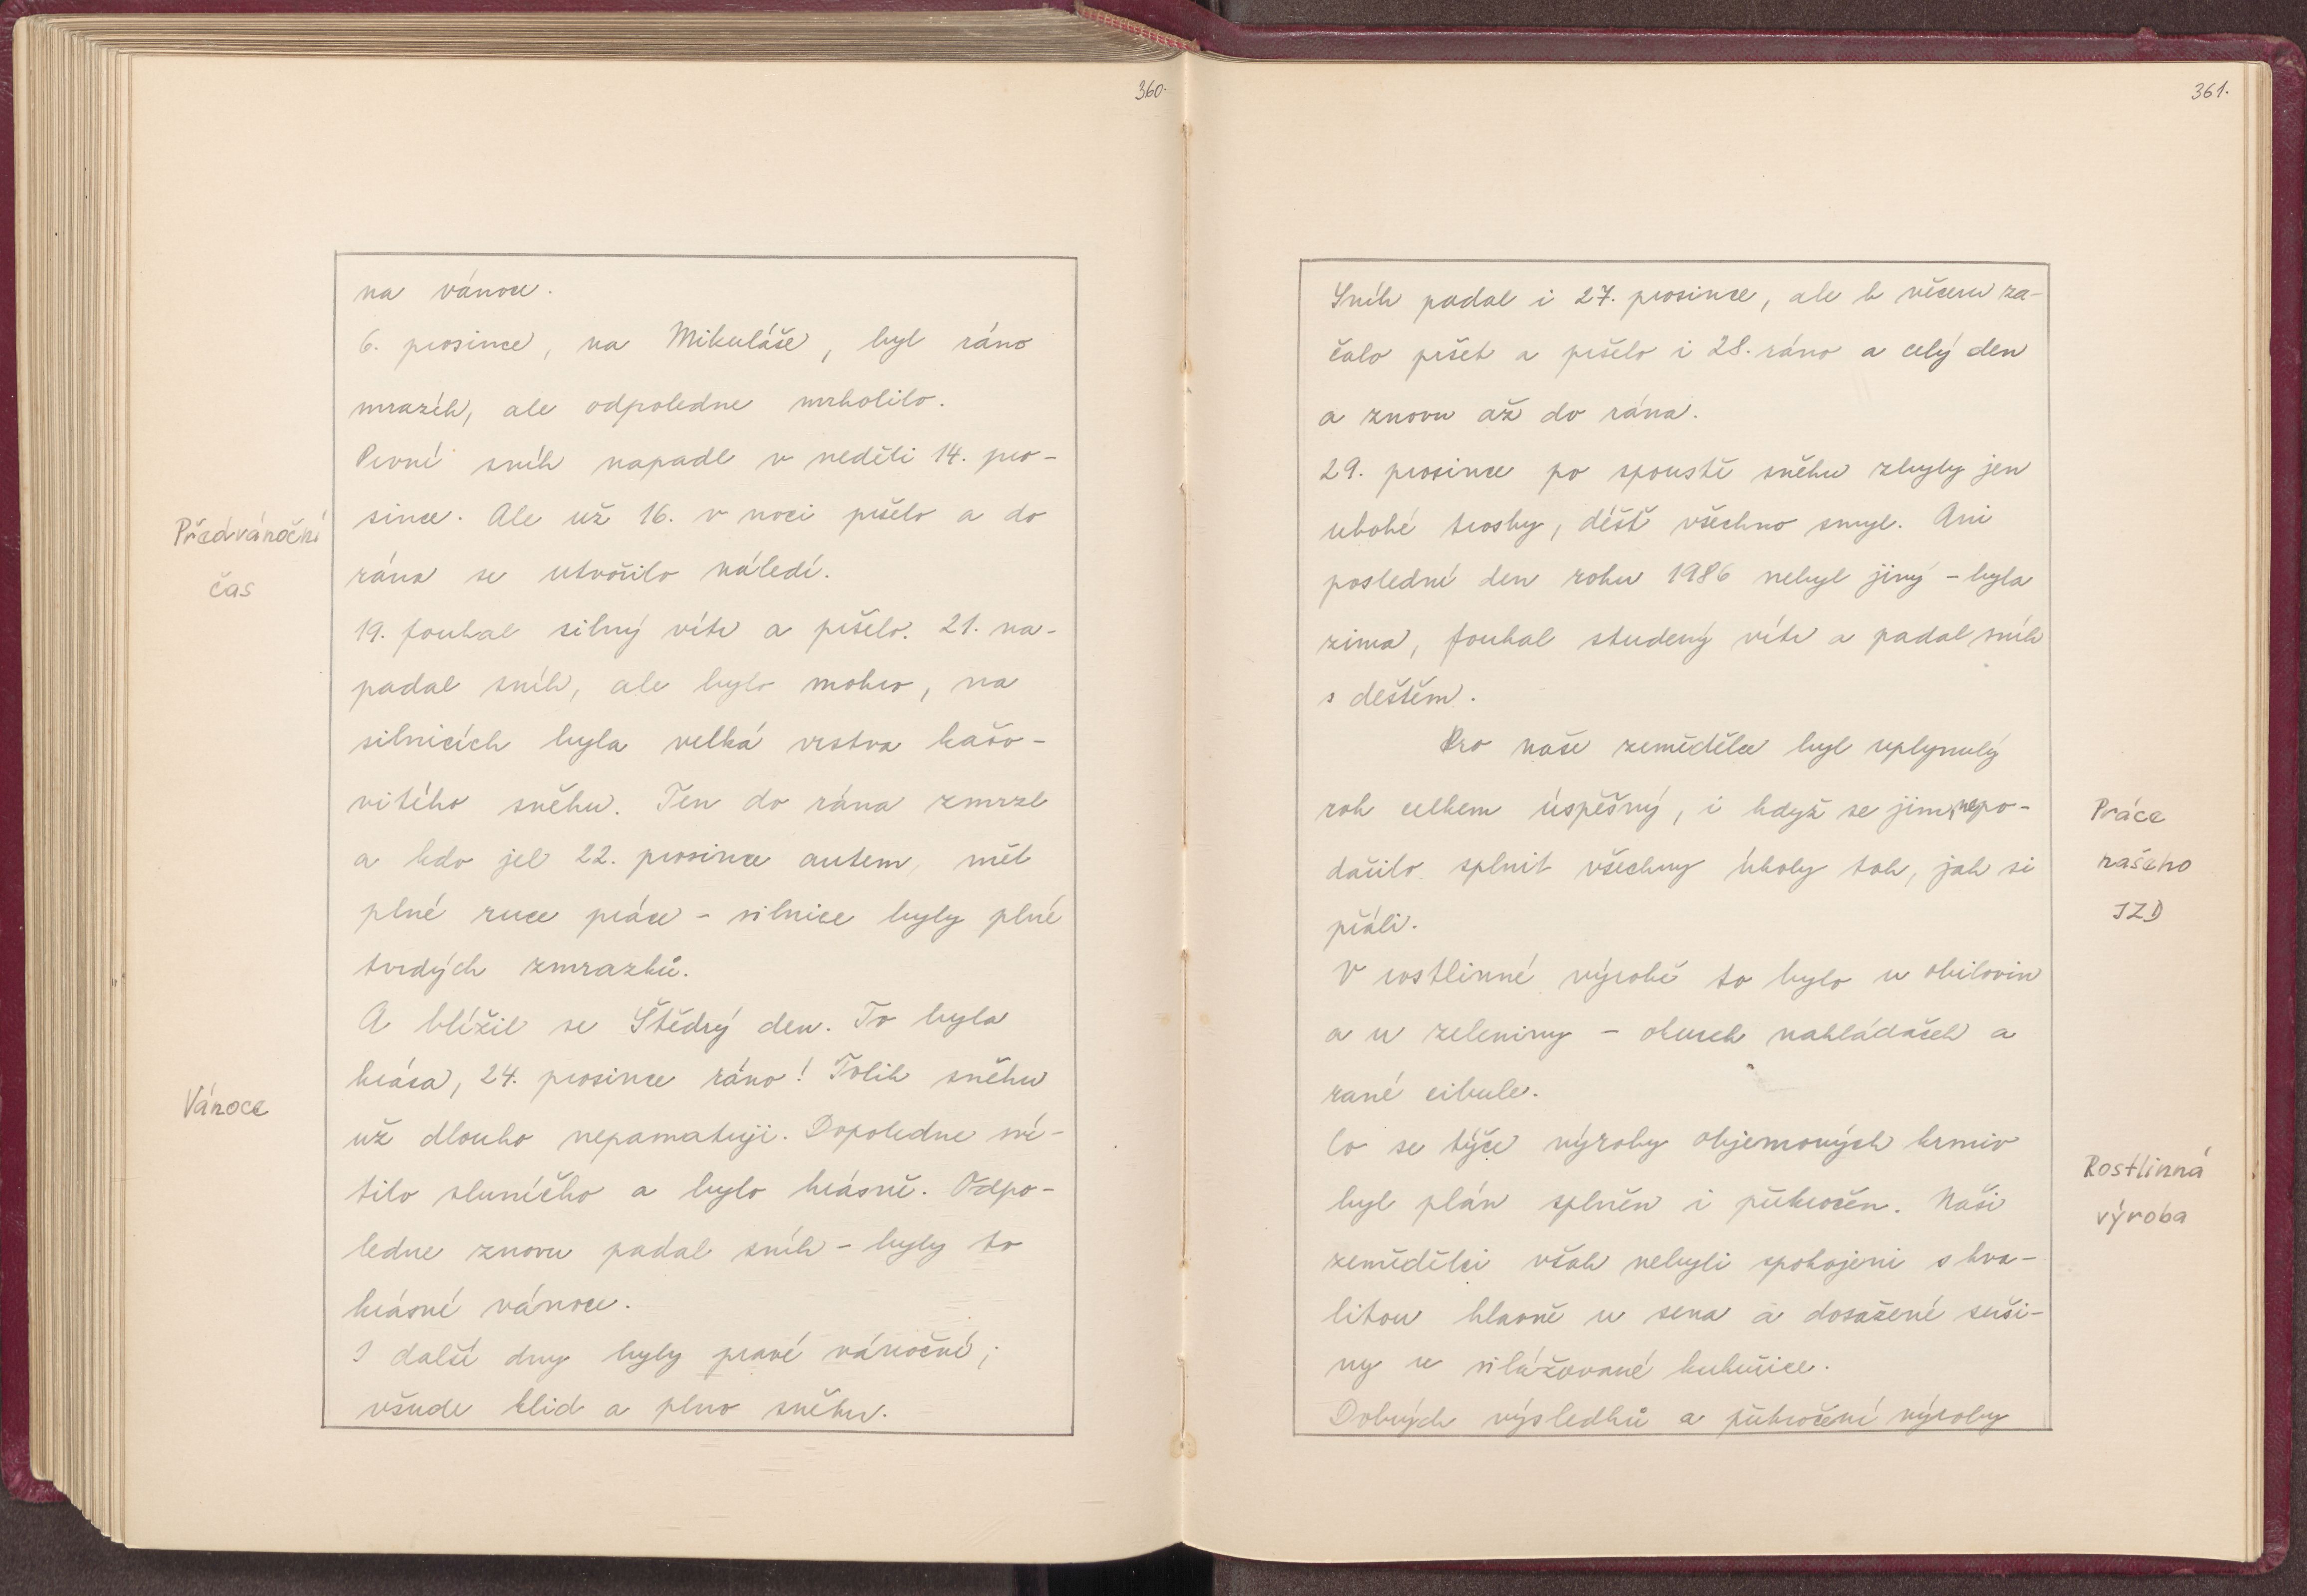 360.
na vánoce.
6. prosince, na Mikuláše, byl ráno
mrazík, ale odpoledne mrholilo.
První sníh napadl v neděli 14. pro-
since. Ale už 16. v noci pršelo a do
rána se utvořilo náledí.
19. foukal silný vítr a pršelo. 21. na-
padal sníh, ale bylo mokro, na
silnicích byla velká vrstva kašo-
vitého sněhu. Ten do rána zmrzl
a kdo jel 22. prosince autem, měl
plné ruce práce - silnice byly plné
tvrdých zmrazků.
A blížil se Štědrý den. To byla
krása, 24. prosince ráno! Tolik sněhu
už dlouho nepamatuji. Dopoledne sví-
tilo sluníčko a bylo krásně. Odpo-
ledne znovu padal sníh - byly to
krásné vánoce.
I další dny byly pravé vánoční;
všude klid a plno sněhu.
Předvánoční
čas
Vánoce
361.
Sníh padal i 27. prosince, ale k večeru za-
čalo pršet a pršelo i 28. ráno a celý den
a znovu až do rána.
29. prosince po spoustě sněhu zbyly jen
ubohé trosky, déšť všechno smyl. Ani
poslední den roku 1986 nebyl jiný - byla
zima, foukal studený vítr a padal sníh
s deštěm.
Pro naše zemědělce byl uplynulý
rok celkem úspěšný, i když se jim nepo-
dařilo splnit všechny úkoly tak, jak si
přáli.
V rostlinné výrobě to bylo u obilovin
a u zeleniny - okurek nakládaček a
rané cibule.
Co se týče výroby objemových krmiv
byl plán splněn i překročen. Naši
zemědělci však nebyli spokojeni s kva-
litou hlavně u sena a dosažené suši-
ny u silážované kukuřice.
Dobrých výsledků a překročení výroby
Práce
našeho
JZD
Rostlinná
výroba